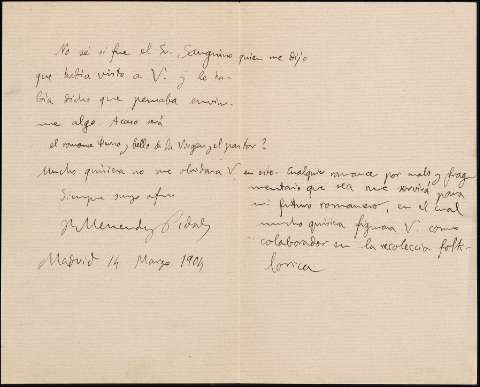 No sé si fue el Sr. Sanguino quien me dijo
que había visto a V. y le ha-
bía dicho que pensaba enviar-
me algo. Acaso será
el romance tierno y bello de la Virgen y el pastor?
Mucho quisiera no me olvidara V. en esto. Cualquier romance por malo y frag-
mentario que sea me servirá para
mi futuro romancero, en el cual
mucho quisiera figurara V. como
colaborador en la recolección folk-
lorica
Siempre suyo afmo
R Menendez Pidal
Madrid 14 Marzo 1904